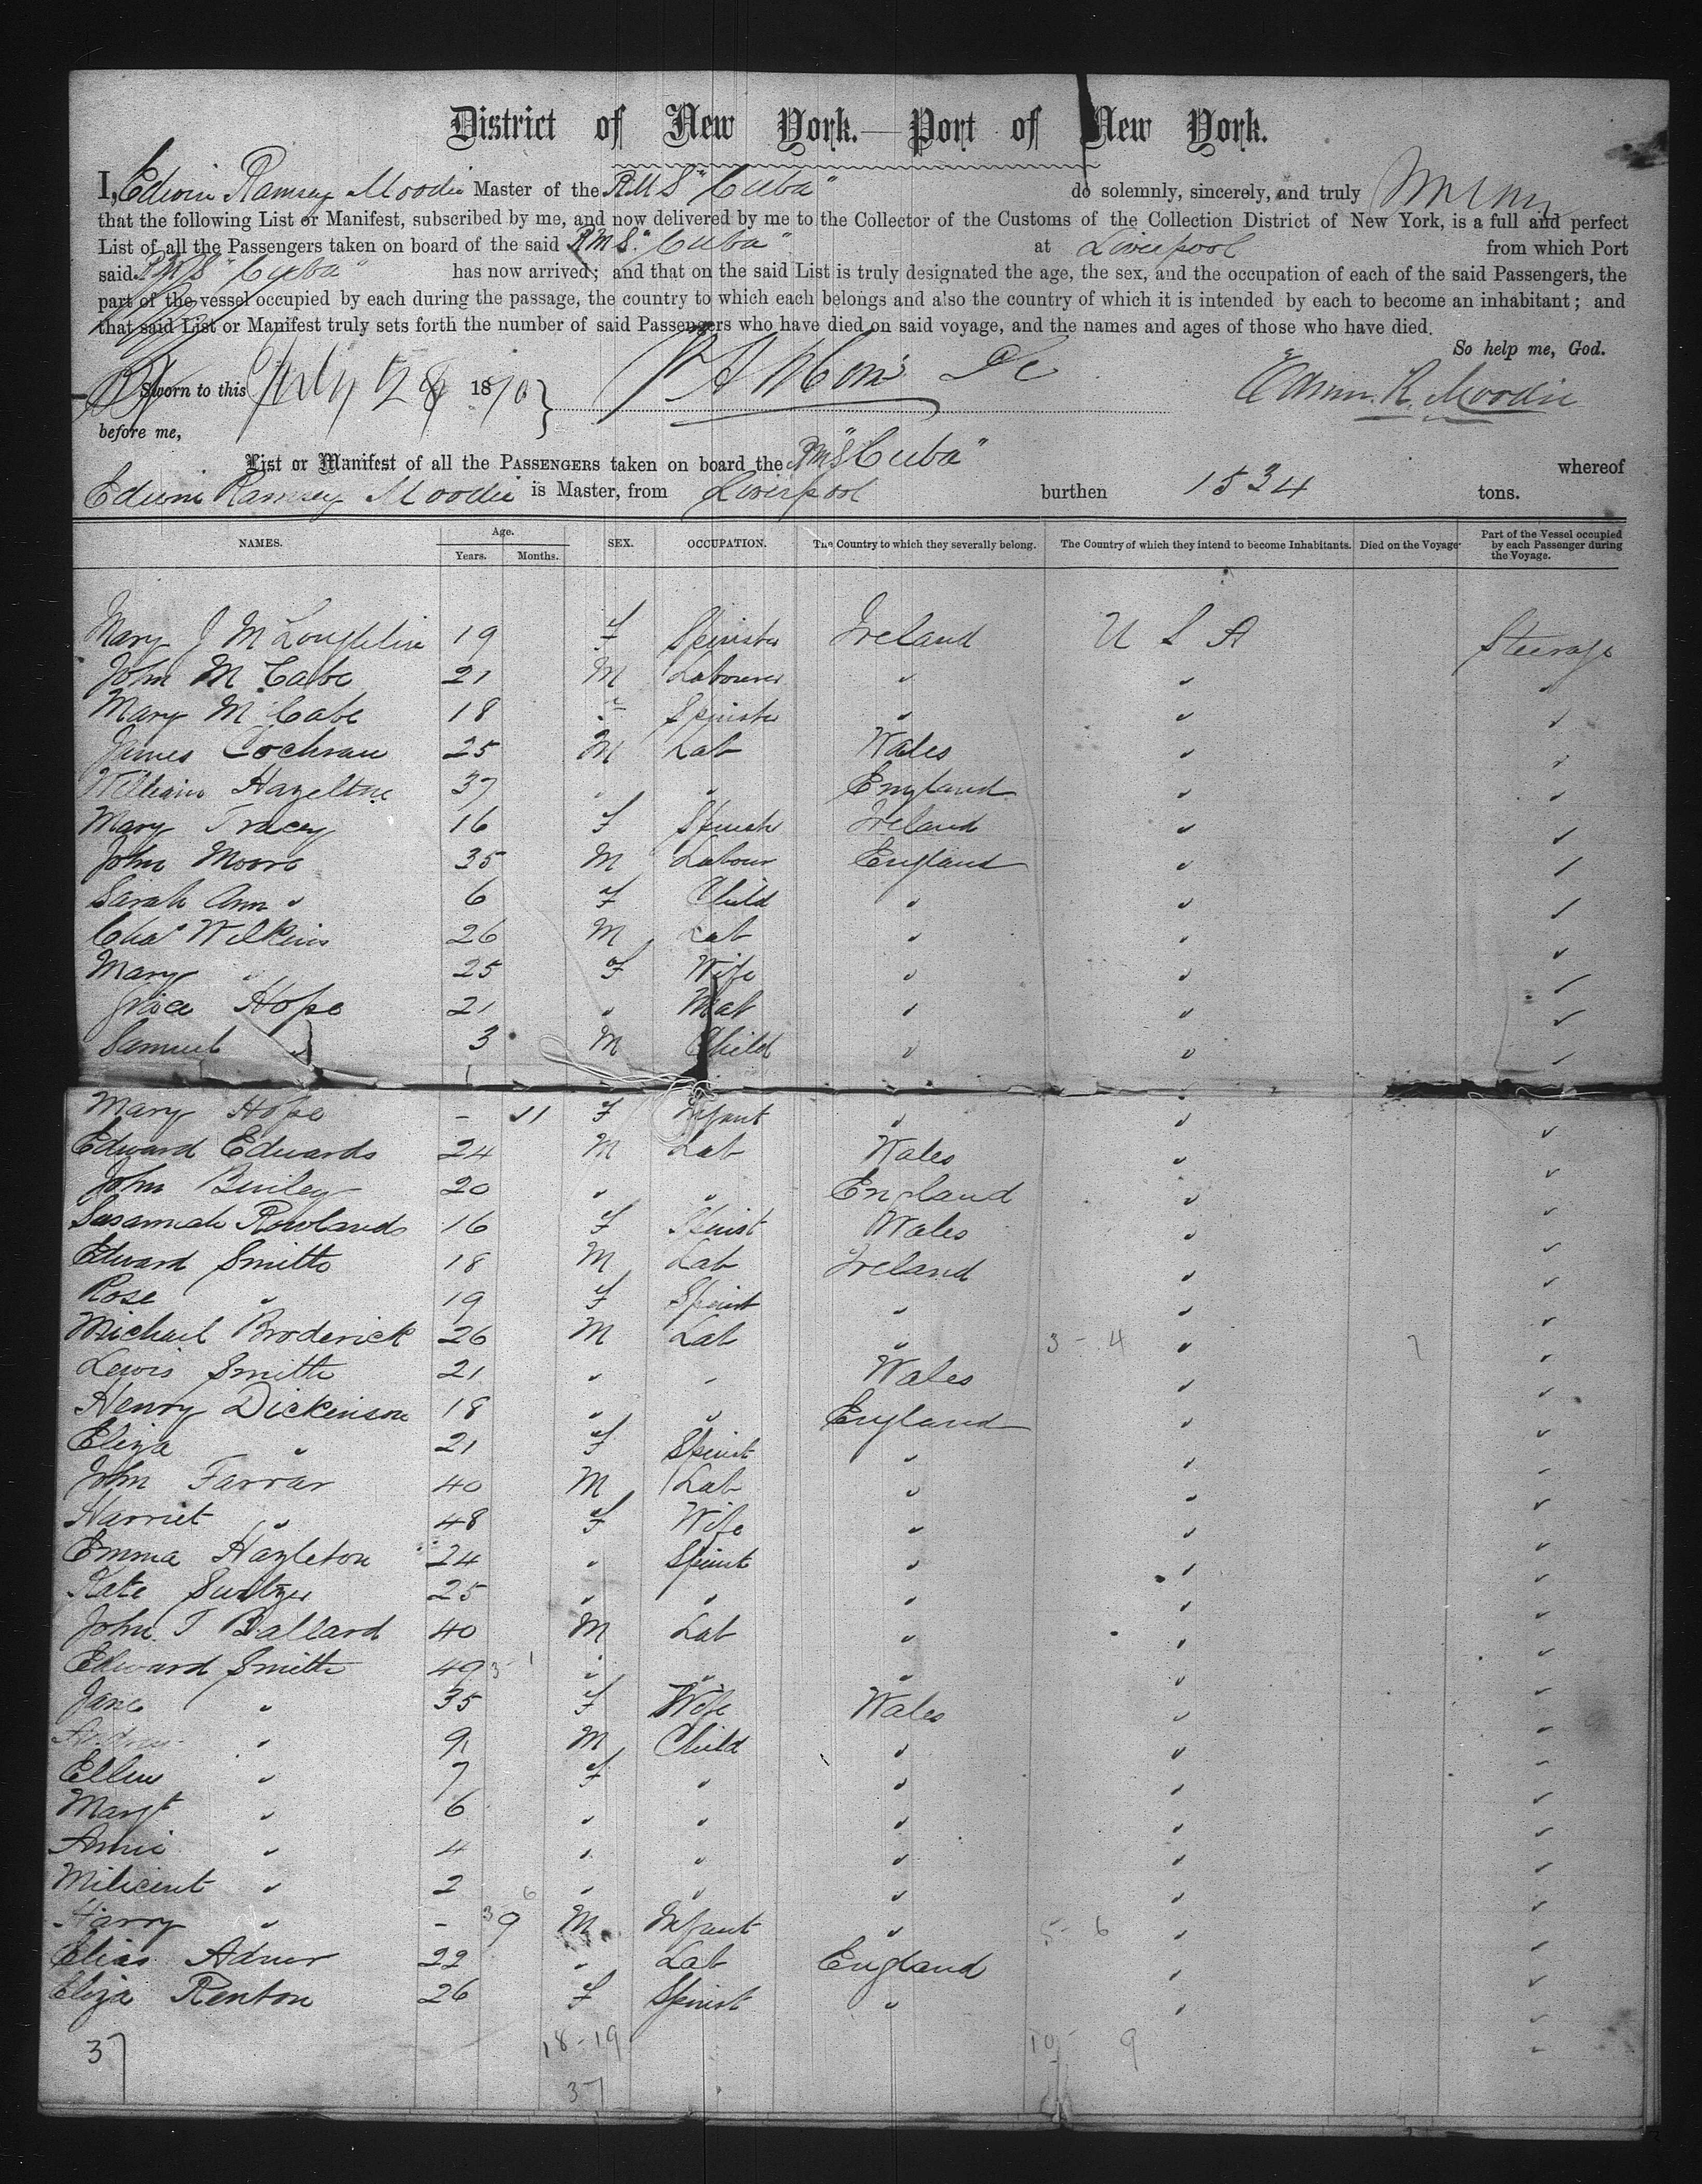 District of New York.—Port of New York.
I, Edwin Ramsey Moodie Master of the RMS "Cuba" do solemnly, sincerely, and truly
that the following List or Manifest, subscribed by me, and now delivered by me to the Collector of the Customs of the Collection District of New York, is a full and perfect
List of all the Passengers taken on board of the said RMS "Cuba" at Liverpool from which Port
said RMS "Cuba" has now arrived; and that on the said List is truly designated the age, the sex, and the occupation of each of the said Passengers, the
part of the vessel occupied by each during the passage, the country to which each belongs and also the country of which it is intended by each to become an inhabitant; and
that said List or Manifest truly sets forth the number of said Passengers who have died on said voyage, and the names and ages of those who have died.
So help me, God.
Sworn to this July 28 1870 Edwin. R. Moodie
before me,
List or Manifest of all the PASSENGERS taken on board the RMS "Cuba" whereof
Edwin Ramsey Moodie is Master, from Liverpool burthen 1534 tons.
NAMES. Age. Years. Months. SEX. OCCUPATION. The Country to which they severally belong. The Country of which they intend to become Inhabitants. Died on the Voyage Part of the Vessel occupied by each Passenger during the Voyage.
Mary J McLoughlin 19 F Spinster Ireland U S A Steerage
John McCabe 21 M Labourer " " "
Mary McCabe 18 Spinster " " "
James Cochrau 25 M Lab Wales " "
William Hazeltine 37 " " England " "
Mary Tracey 16 F Spinste Ireland " "
John Moore 35 M Labour England " "
Sarah Ann " 6 F Child " " "
Chas Wilkins 26 M Lab " " "
Mary " 25 F Wife " " "
Grace Hope 21 " Mat " " "
Samuel " 3 M Child " " "
Mary Hope - 11 F Infant " " "
Edward Edwards 24 M Lab Wales " "
John 20 " " England " "
Susannah Rowlands 16 F Spinst Wales " "
Edward Smith 18 M Lab Ireland " "
Rose " 19 F Spinst " " "
Michael Broderick 26 M Lab " 3 - 4 " "
Lewis Smith 21 " " Wales " "
Henry Dickenson 18 " " England " "
Eliza " 21 F Spinst " " "
John Farrar 40 M Lab " " "
Harriet " 48 F Wife " " "
Emma Hazleton 24 " Spinst " " "
Kate 25 " " " " "
John T Ballard 40 M Lab " " "
Edward Smith 49 3-1 " " " " "
Jane " 35 F Wife Wales " "
" 9 M Child " " "
Ellen " 7 F " " " "
Margt " 6 " " " " "
Annie " 4 " " " " "
Milicent " 2 " " " " "
Harry " - 9 M Infant " 5 - 6 " "
Elias Adnor 22 " Lab England " "
Eliza Renton 26 F Spinst " " "
37 18-19 10 9
37